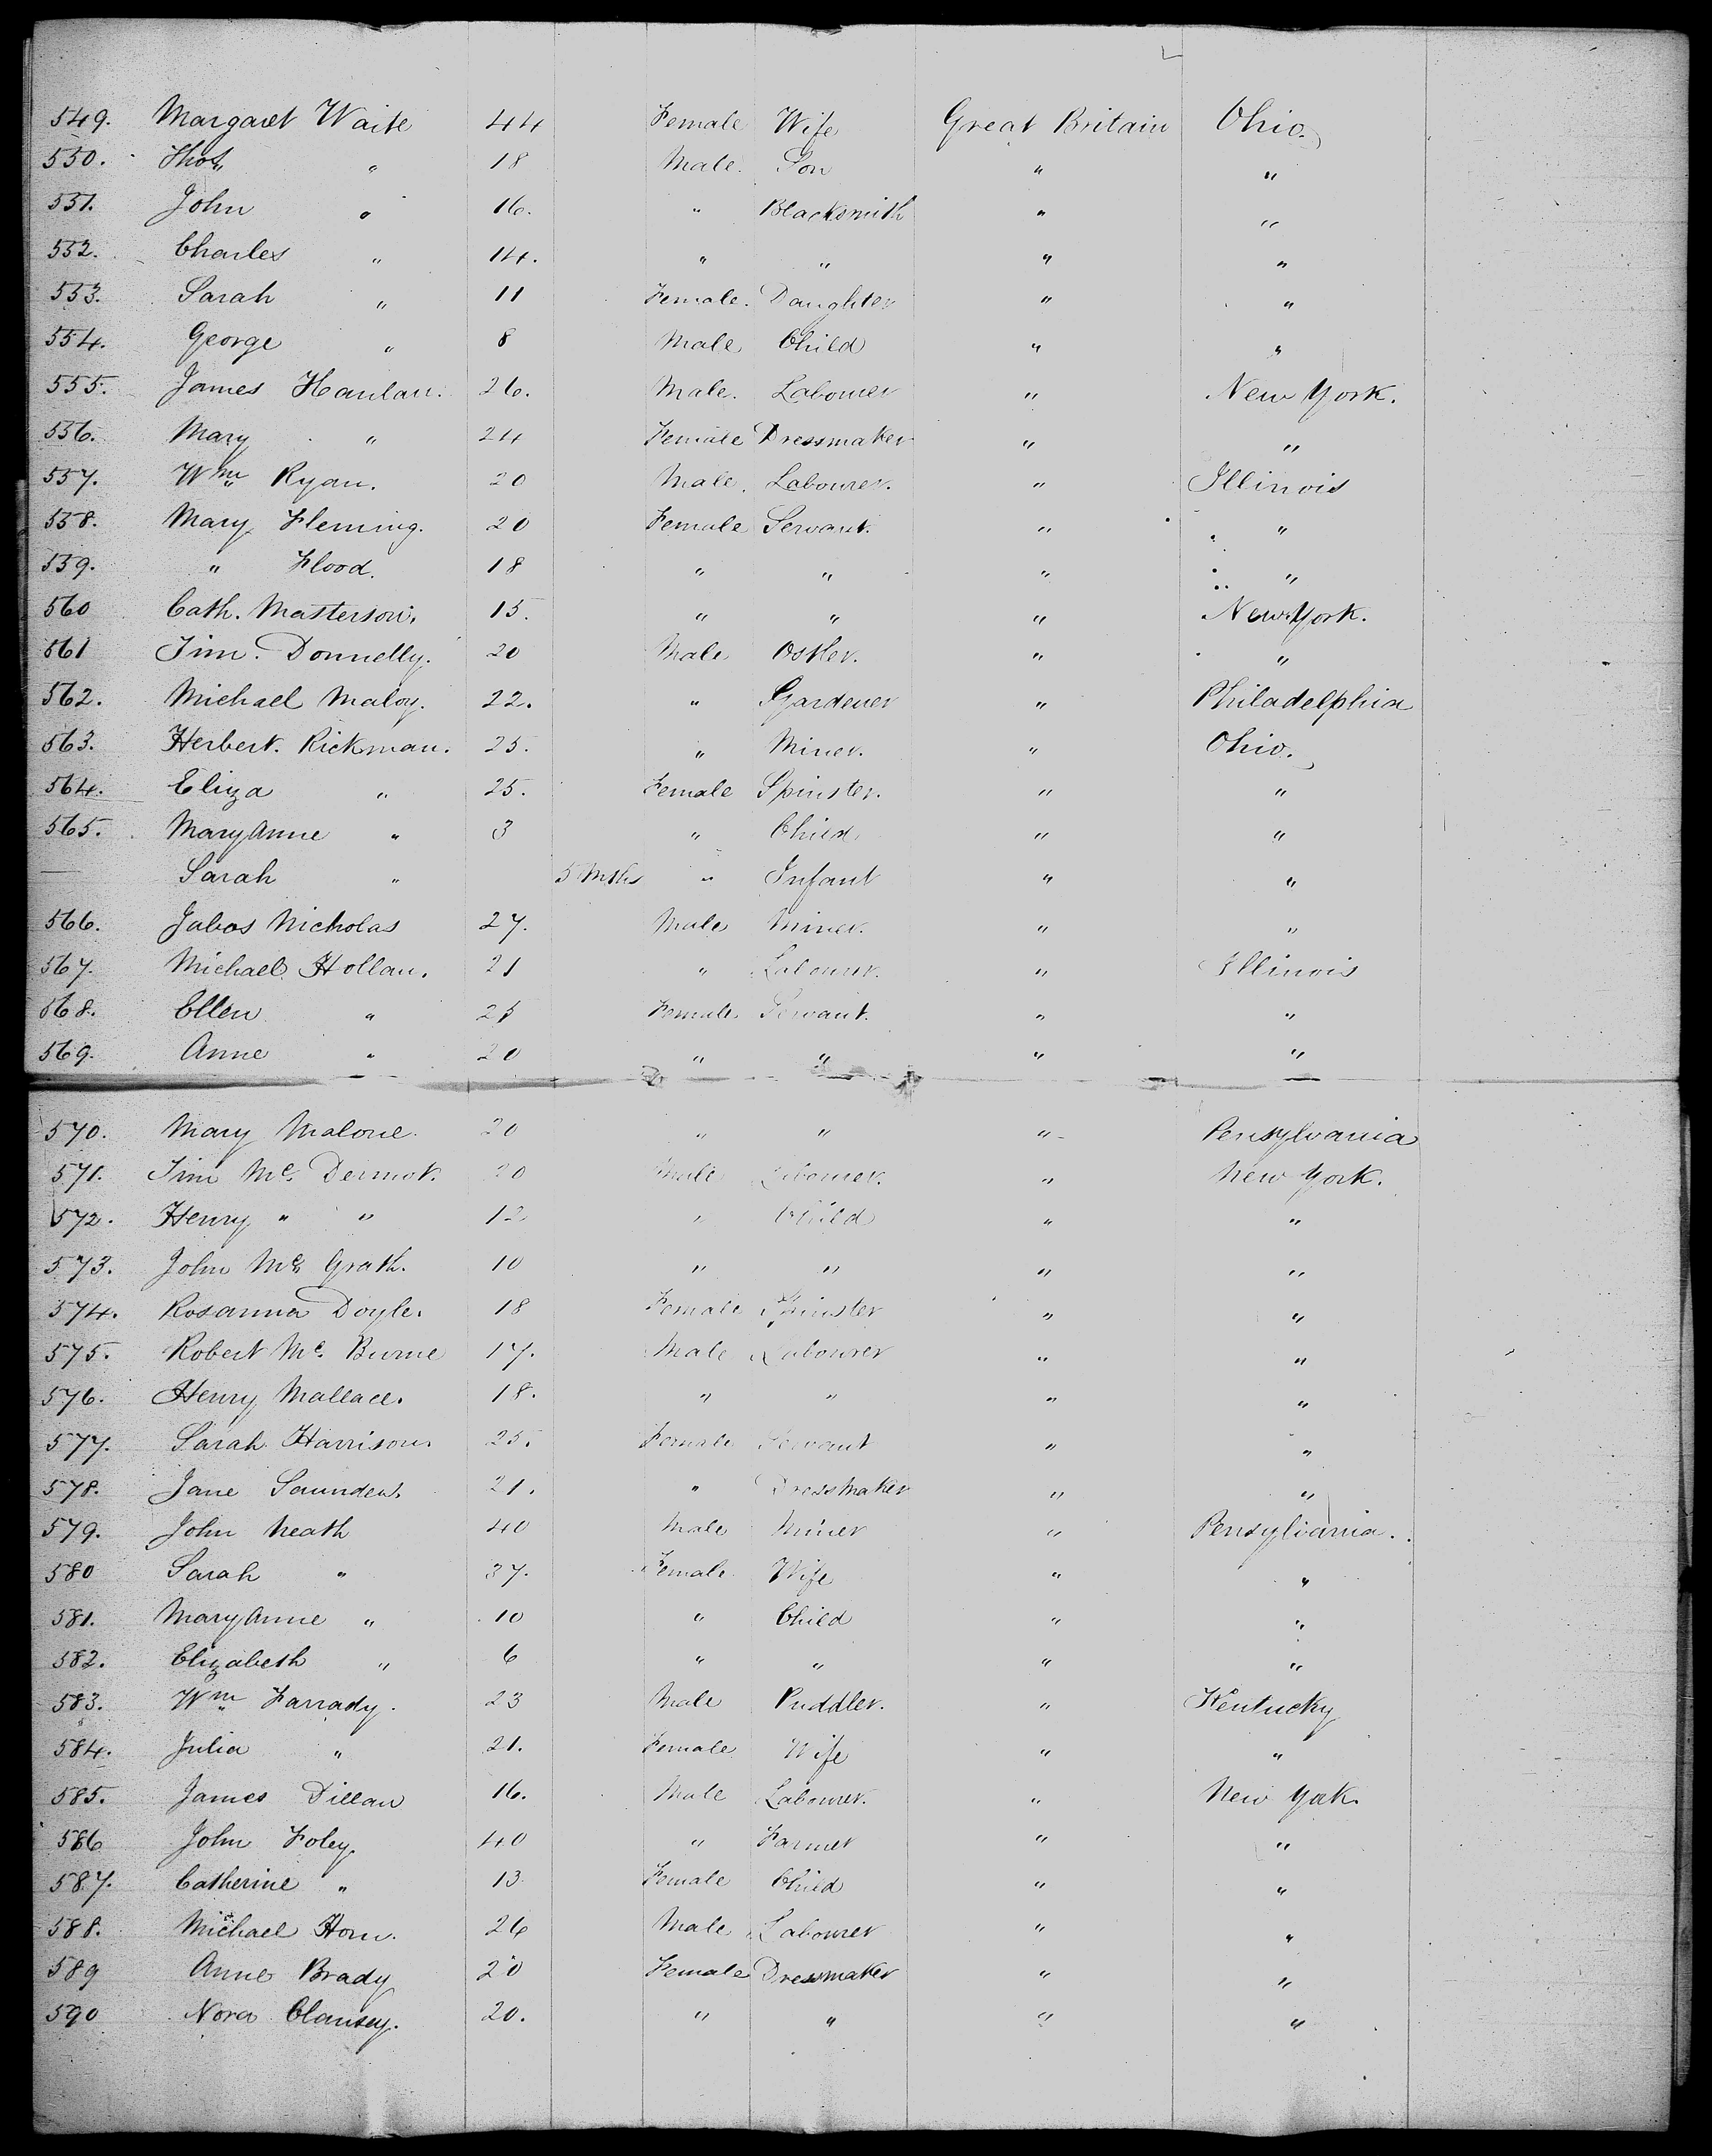 549. Margaret Waite 44 Female Wife Great Britain Ohio.
550. Thos " 18 Male. Son " "
551. John " 16. " Blacksmith " "
552. Charles " 14. " " " "
553. Sarah " 11 Female. Daughter " "
554. George " 8 Male Child " "
555. James Hanlan. 26. Male. Labourer " New York.
556. Mary " 24 Female Dressmaker " "
557. Wm Ryan. 20 Male. Labourer. " Illinois
558. Mary Fleming. 20 Female Servant. " "
559. " Flood. 18 " " " "
560 Cath. Masterson. 15. " " " New York.
561 Jim. Donnelly. 20 Male Ostler. " "
562. Michael Maloy. 22. " Gardener " Philadelphia
563. Herbert. Rickman. 25. " Miner. " Ohio.
564. Eliza " 25. Female Spinster. " "
565. Mary Anne " 3 " Child " "
— Sarah " 5 Mths " Infant " "
566. Jabos Nicholas 27. Male Miner. " "
567. Michael Hollan. 21 " Labourer. " Illinois
568. Ellen " Female Servant. " "
569. Anne " 20 " " " "
570. Mary Malone. 20 " " " Pensylvania
571. Jim Mc. Dermot. 20 Male Labourer. " New York.
572. Henry " " 12 " Child " "
573. John Mc Grath. 10 " " " "
574. Rosanna Doyle. 18 Female Spinster " "
575. Robert Mc. Burne 17. Male Labourer " "
576. Henry Wallace. 18. " " " "
577. Sarah Harrison. 25. Female Servant " "
578. Jane Saunders. 21. " Dressmaker " "
579. John Neath 40 Male Miner " Pensylvania.
580 Sarah " 37. Female Wife " "
581. Mary Anne " 10 " Child " "
582. Elizabeth " 6 " " " "
583. Wm Farrady. 23 Male Puddler. " Kentucky
584. Julia " 21. Female Wife " "
585. James Dillan 16. Male Labourer. " New York.
586 John Foley. 40 " Farmer " "
587. Catherine " 13 Female Child " "
588. Michael Horn. 26 Male Labourer " "
589 Anne Brady 20 Female Dressmaker " "
590 Nora Clansey. 20. " " " "